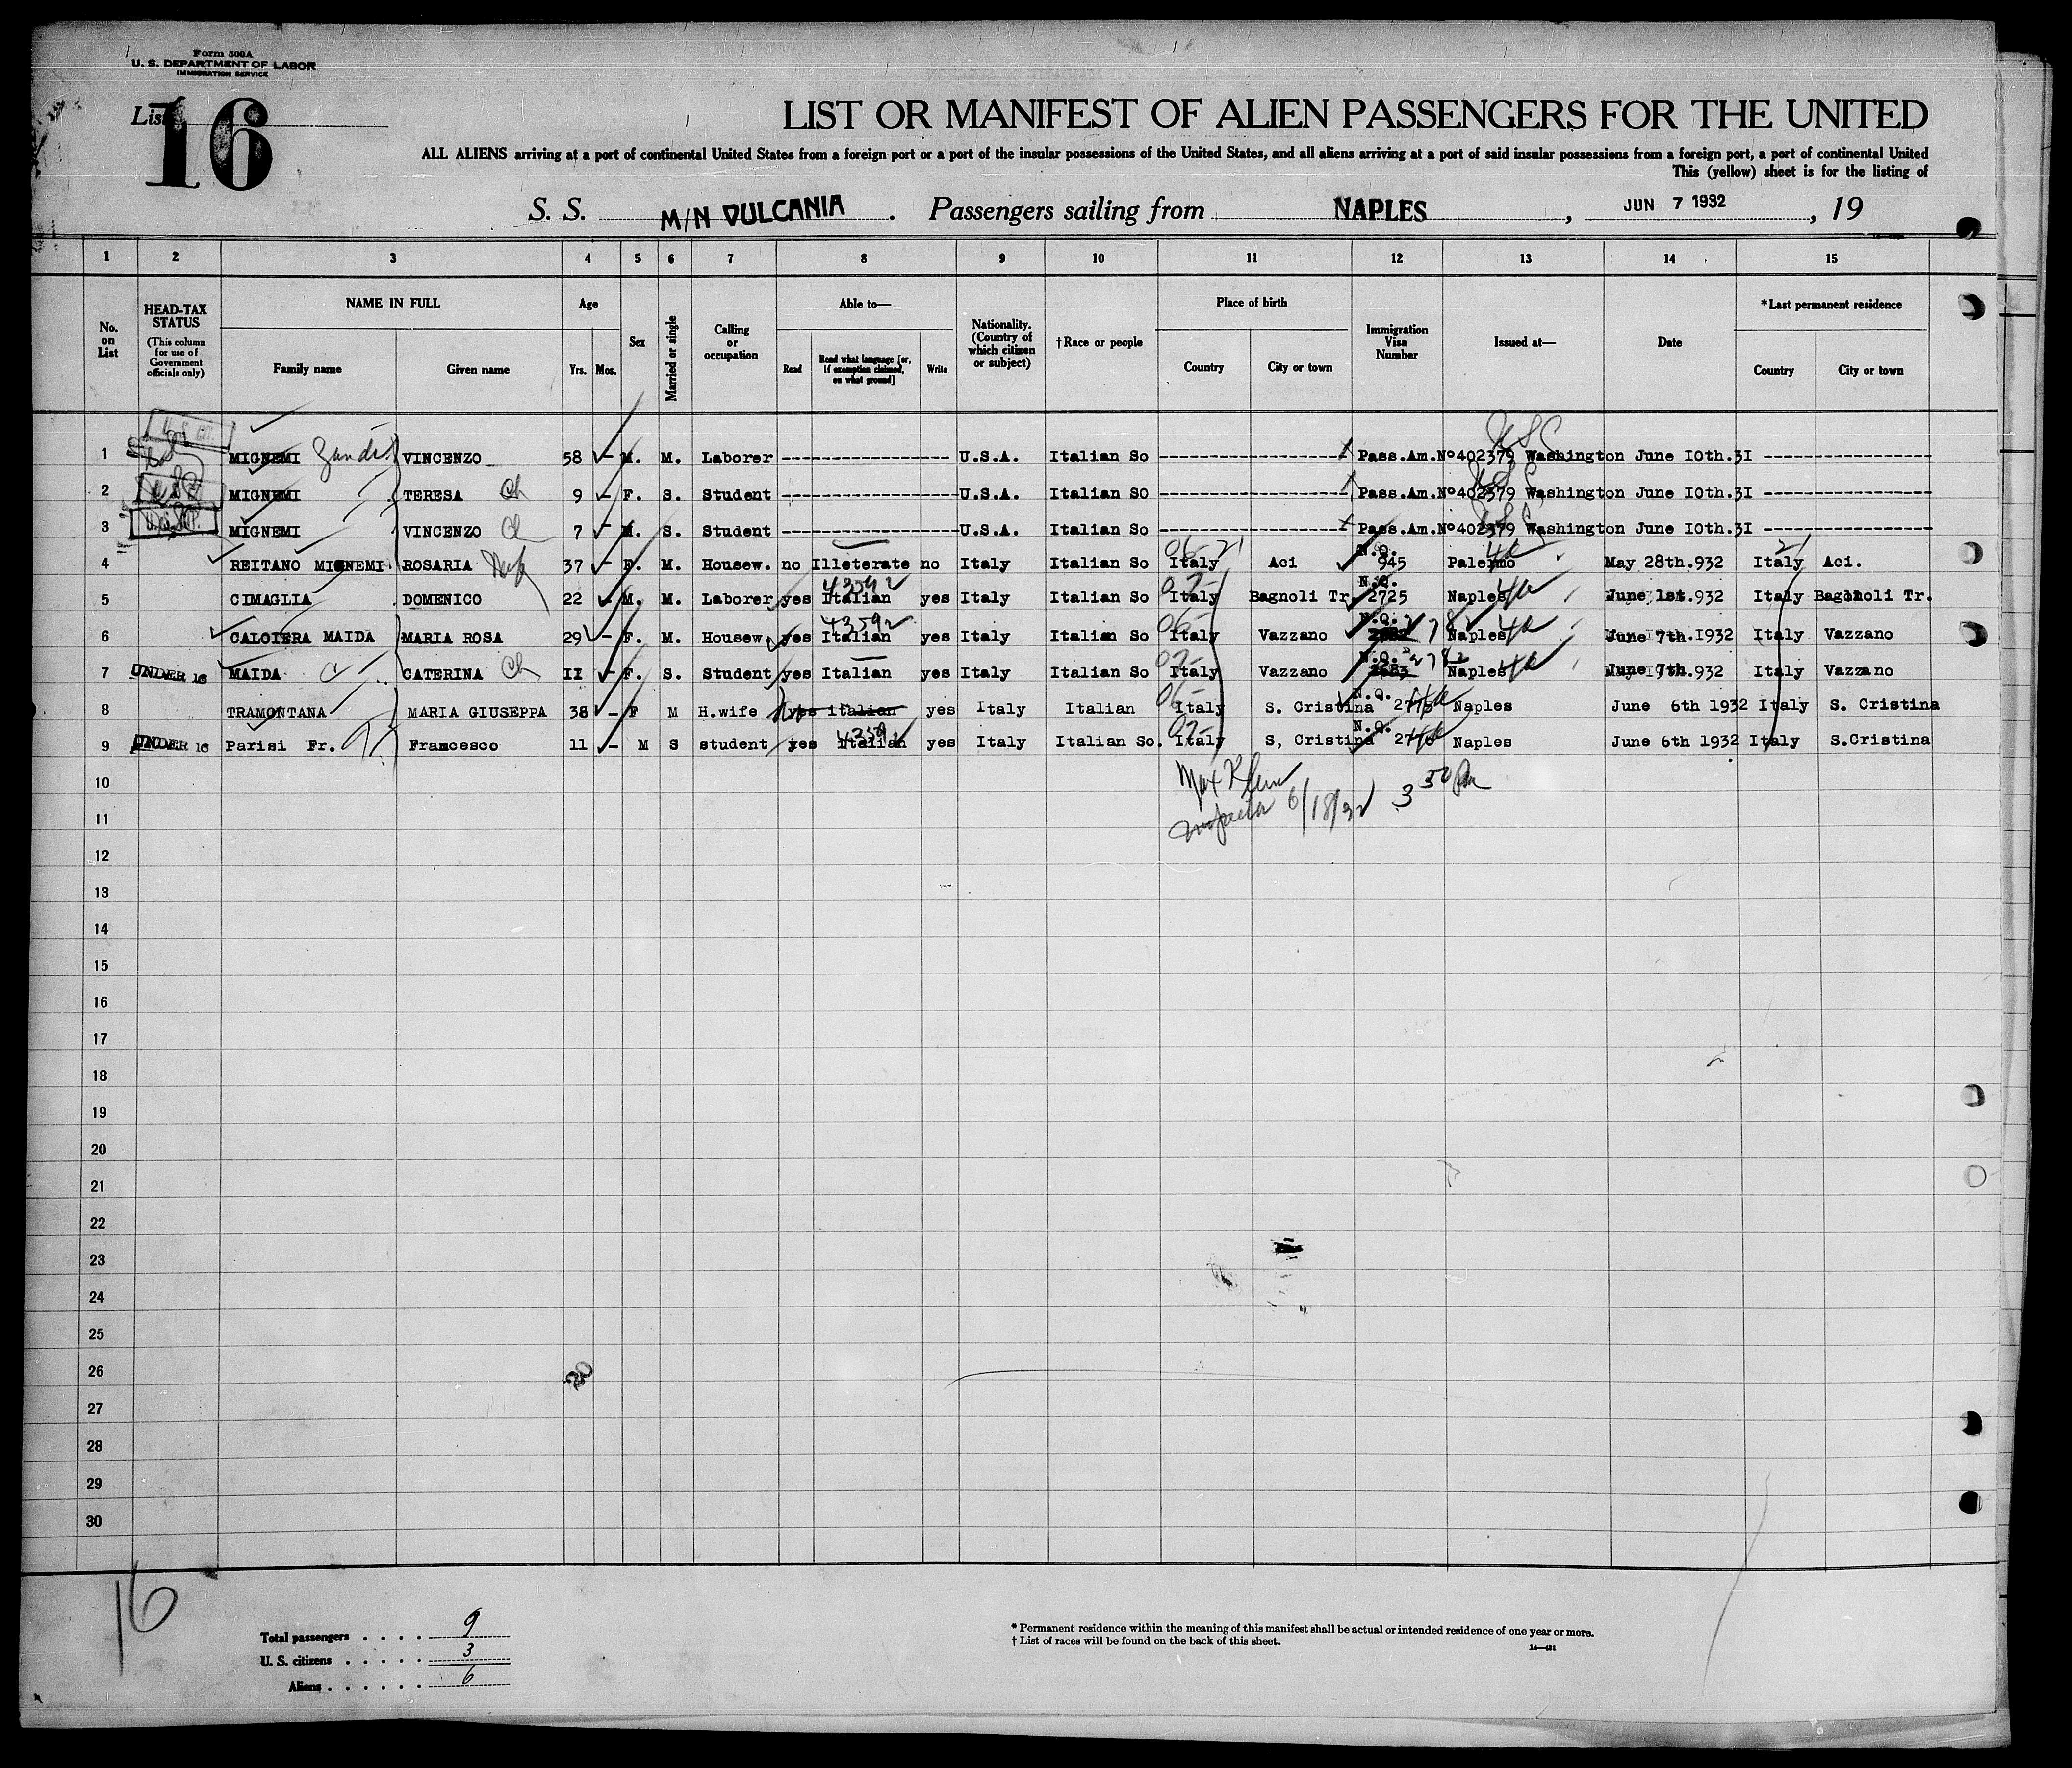 Form 500A
U. S. DEPARTMENT OF LABOR
IMMIGRATION SERVICE
List 16
LIST OR MANIFEST OF ALIEN PASSENGERS FOR THE UNITED
ALL ALIENS arriving at a port of continental United States from a foreign port or a port of the insular possessions of the United States, and all aliens arriving at a port of said insular possessions from a foreign port, a port of continental United
This (yellow) sheet is for the listing of
S. S. M/N VULCANIA . Passengers sailing from NAPLES , JUN 7 1932 , 19
1 2 3 4 5 6 7 8 9 10 11 12 13 14 15
No. on List
HEAD-TAX STATUS
(This column for use of Government officials only)
NAME IN FULL
Family name Given name
Age
Yrs. Mos.
Sex
Married or single
Calling or occupation
Able to—
Read
Read what language [or, if exemption claimed, on what ground]
Write
Nationality. (Country of which citizen or subject)
†Race or people
Place of birth
Country City or town
Immigration Visa Number
Issued at—
Date
*Last permanent residence
Country City or town
1 MIGNEMI VINCENZO 58 - M. M. Laborer U.S.A. Italian So Pass.Am.Nº402379 Washington June I0th.3I USC
2 MIGNEMI TERESA Ch 9 - F. S. Student U.S.A. Italian SO Pass.Am.Nº402379 Washington June I0th.3I USC
3 MIGNEMI VINCENZO Ch 7 - M. S. Student U.S.A. Italian So Pass.Am.Nº402379 Washington June I0th.3I USC
4 REITANO MIGNEMI ROSARIA 37 - F. M. Housew. no Illeterate no Italy Italian So Italy Aci N.Q. 945 Palermo May 28th.932 Italy Aci.
5 CIMAGLIA DOMENICO 22 - M. M. Laborer yes Italian yes Italy Italian So Italy Bagnoli Tr. N.Q. 2725 Naples June 1st.932 Italy Bagnoli Tr.
6 CALOIERA MAIDA MARIA ROSA 29 - F. M. Housew. yes Italian yes Italy Italian So Italy Vazzano N.Q. Naples June 7th.1932 Italy Vazzano
7 UNDER 16 MAIDA CATERINA Ch II - F. S. Student yes Italian yes Italy Italian So Italy Vazzano N.Q. Naples June 7th.932 Italy Vazzano
8 TRAMONTANA MARIA GIUSEPPA 38 - F M H.wife yes italian yes Italy Italian Italy S. Cristina N.Q. Naples June 6th 1932 Italy S. Cristina
9 UNDER 16 Parisi Fr. Francesco 11 - M S student yes Italian yes Italy Italian So. Italy S, Cristina N.Q. Naples June 6th 1932 Italy S.Cristina
10 Max
11 6/18/32 3 50 Pm
12
13
14
15
16
17
18
19
20
21
22
23
24
25
26 20
27
28
29
30
16
Total passengers . . . . 9
U. S. citizens . . . . . 3
Aliens . . . . . . 6
* Permanent residence within the meaning of this manifest shall be actual or intended residence of one year or more.
† List of races will be found on the back of this sheet.